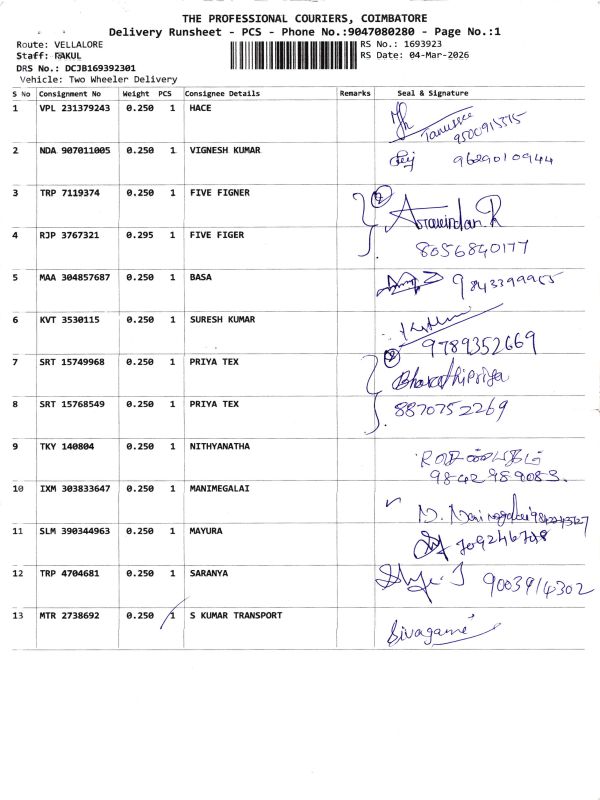 THE PROFESSIONAL COURIERS, COIMBATORE
Delivery Runsheet - PCS - Phone No.:9047080280 - Page No.:1
Route: VELLALORE RS No.: 1693923
Staff: RAKUL RS Date: 04-Mar-2026
DRS No.: DCJB169392301
Vehicle: Two Wheeler Delivery
S No Consignment No Weight PCS Consignee Details Remarks Seal & Signature
1 VPL 231379243 0.250 1 HACE
2 NDA 907011005 0.250 1 VIGNESH KUMAR 9629010944
3 TRP 7119374 0.250 1 FIVE FIGNER 2 Aravindan.R
4 RJP 3767321 0.295 1 FIVE FIGER 8056840177
5 MAA 304857687 0.250 1 BASA
6 KVT 3530115 0.250 1 SURESH KUMAR 9789352669
7 SRT 15749968 0.250 1 PRIYA TEX 2 Bharathipriya
8 SRT 15768549 0.250 1 PRIYA TEX 8870752269
9 TKY 140804 0.250 1 NITHYANATHA 9842989083.
10 IXM 303833647 0.250 1 MANIMEGALAI
11 SLM 390344963 0.250 1 MAYURA
12 TRP 4704681 0.250 1 SARANYA 9003914302
13 MTR 2738692 0.250 1 S KUMAR TRANSPORT Sivagame